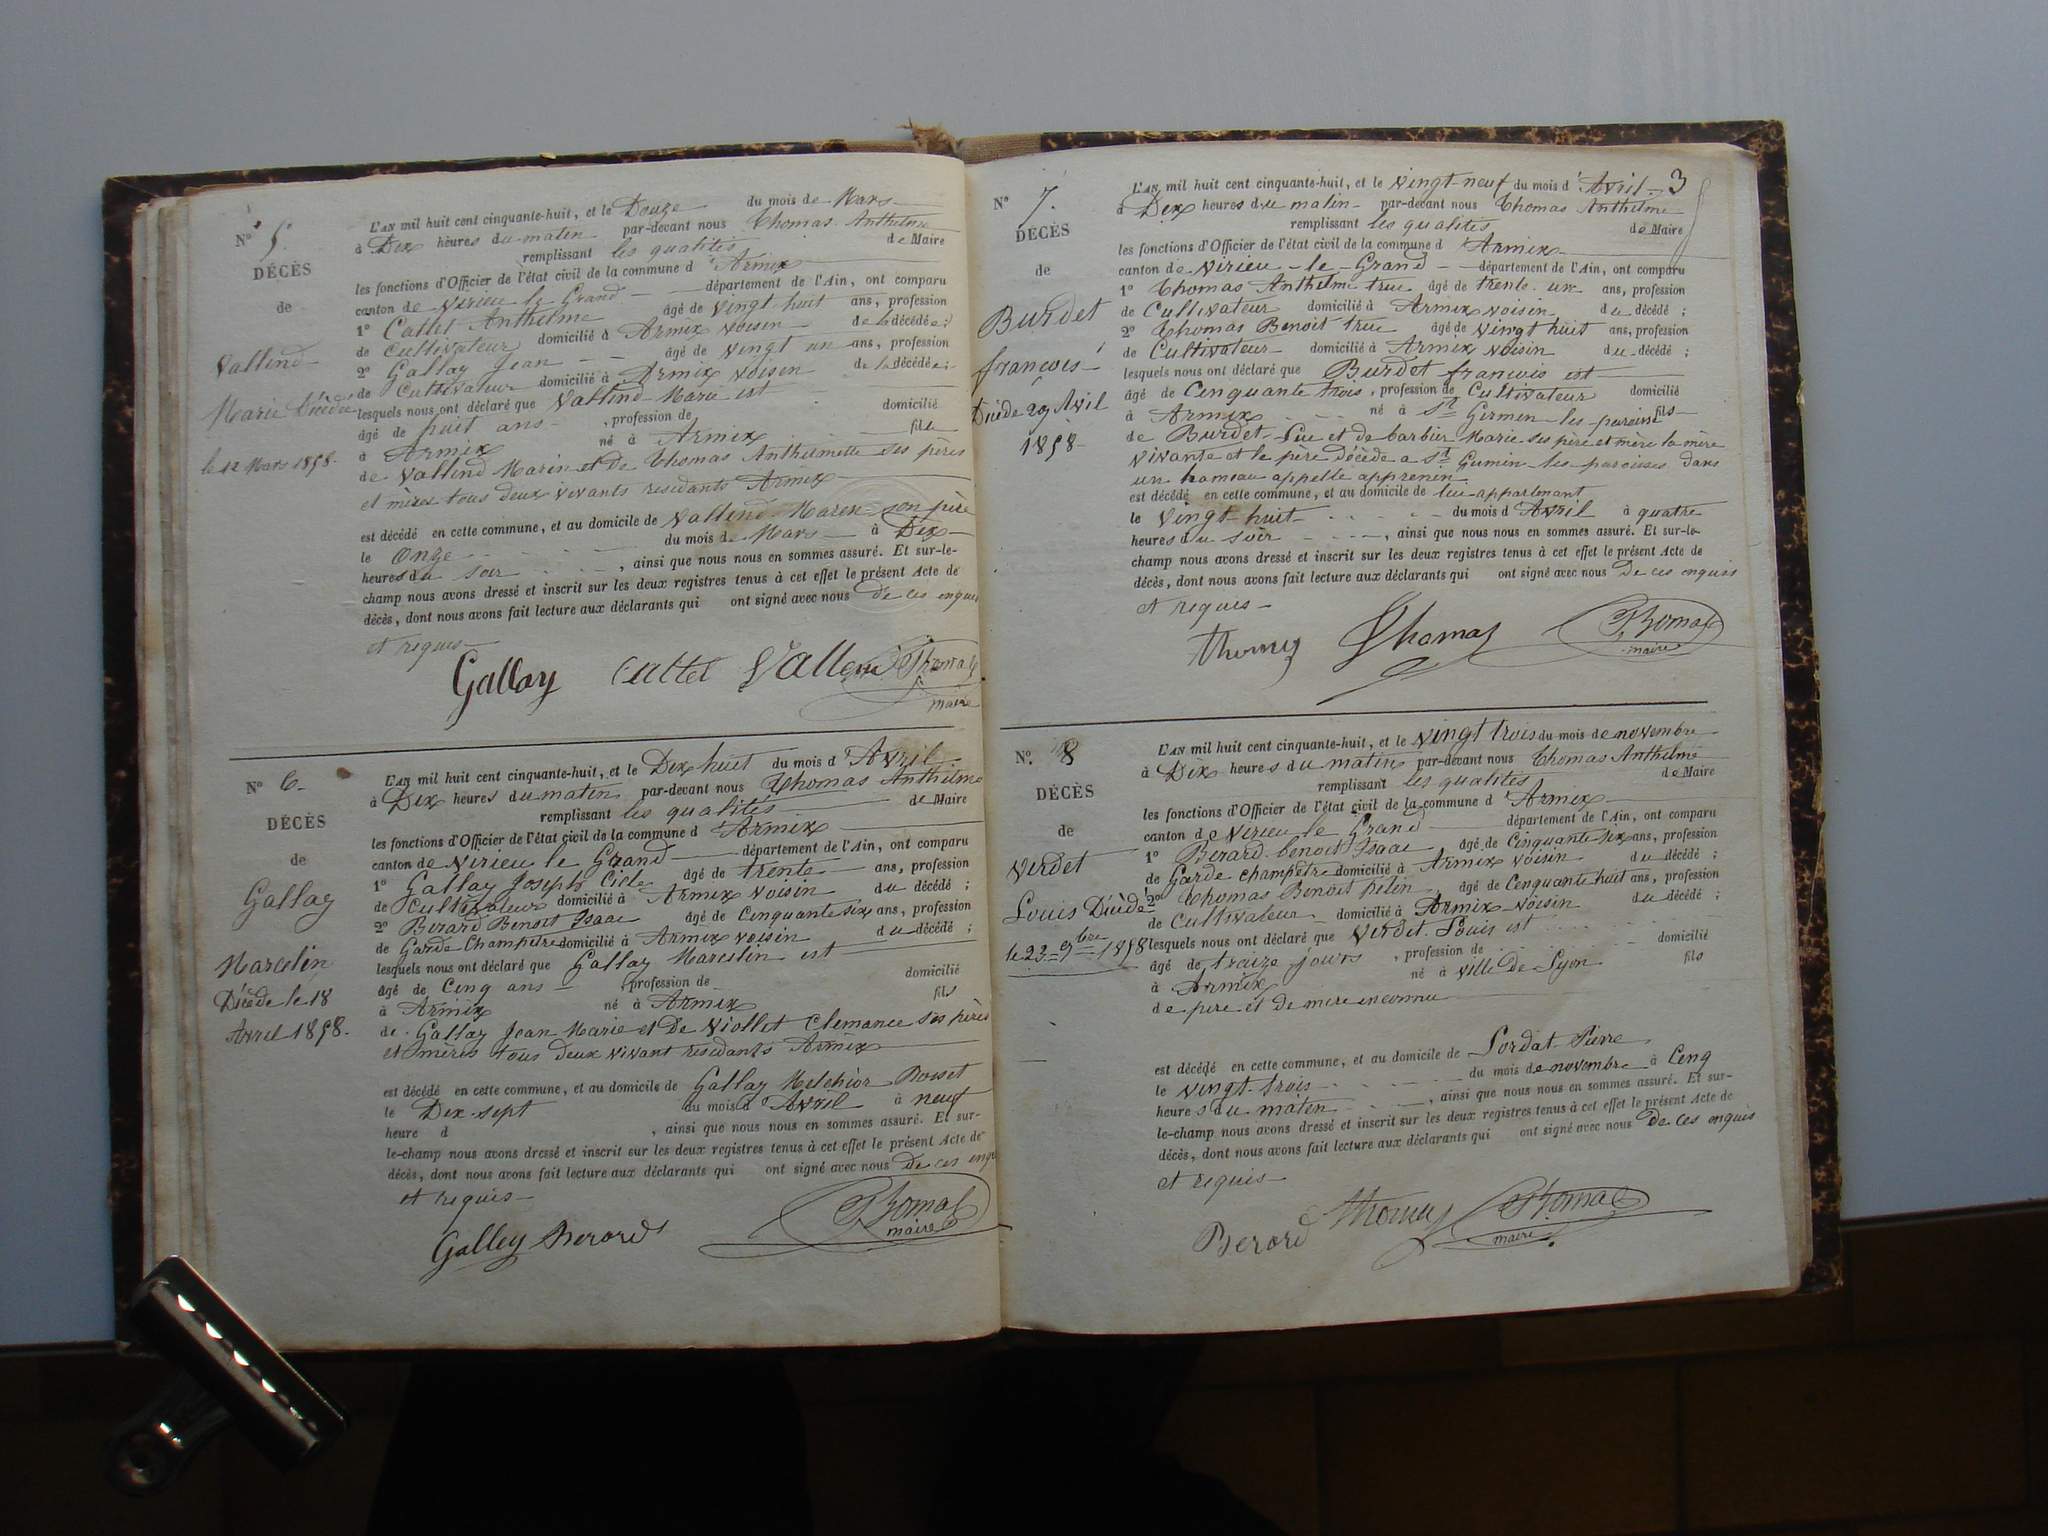 N° 5.
DÉCÈS
de
Vallend
Marie Décédée
le 12 Mars 1858.
L'AN mil huit cent cinquante-huit, et le Douze du mois de Mars
à Dix heures du matin par-devant nous Thomas Anthelme
remplissant les qualités de Maire
les fonctions d'Officier de l'état civil de la commune d'Armix
canton de Virieu le Grand département de l'Ain, ont comparu
1° Callet Anthelme âgé de vingt huit ans, profession
de Cultivateur domicilié à Armix voisin de la décédée;
2° Gallay Jean âgé de vingt un ans, profession
de Cultivateur domicilié à Armix voisin de la décédée;
lesquels nous ont déclaré que Vallend Marie est
âgé de huit ans , profession de domicilié
à Armix né à Armix fille
de Vallend Marin et De Thomas Anthelmette ses pères
et mères tous deux vivants residants Armix
est décédé en cette commune, et au domicile de Vallend Maren son père
le Onze du mois de Mars à Dix
heures du soir , ainsi que nous nous en sommes assuré. Et sur-le-
champ nous avons dressé et inscrit sur les deux registres tenus à cet effet le présent Acte de
décès, dont nous avons fait lecture aux déclarants qui ont signé avec nous De ces enquis
et requis
Gallay Callet Vallend Thomas
maire
N° 6
DÉCÈS
de
Gallay
Marcelin
Décède le 18
Avril 1858.
L'AN mil huit cent cinquante-huit, et le Dix huit du mois d'Avril
à Dix heures du matin par-devant nous Thomas Anthelme
remplissant les qualités de Maire
les fonctions d'Officier de l'état civil de la commune d'Armix
canton de Virieu le Grand département de l'Ain, ont comparu
1° Gallay Joseph âgé de trente ans, profession
de Cultivateur domicilié à Armix voisin du décédé;
2° Berard Benoit Isaac âgé de Cinquante six ans, profession
de Garde Champètre domicilié à Armix voisin du décédé;
lesquels nous ont déclaré que Gallay Marcelin est
âgé de Cinq ans , profession de domicilié
à Armix né à Armix fils
de Gallay Jean Marie et De Viollet Clemance ses pères
et mères tous deux vivant residants Armix
est décédé en cette commune, et au domicile de Gallay Melchior Bosset
le Dix-sept du mois d'Avril à neuf
heure d , ainsi que nous nous en sommes assuré. Et sur-
le-champ nous avons dressé et inscrit sur les deux registres tenus à cet effet le présent Acte de
décès, dont nous avons fait lecture aux déclarants qui ont signé avec nous De ces enqu
et requis
Galley Berard Thomas
maire
3
N° 7.
DÉCÈS
de
Burdet
françois
Décède 29 Avril
1858
L'AN mil huit cent cinquante-huit, et le vingt-neuf du mois d'Avril
à Dix heures du matin par-devant nous Thomas Anthelme
remplissant les qualités de Maire
les fonctions d'Officier de l'état civil de la commune d'Armix
canton de Virieu-le-Grand département de l'Ain, ont comparu
1° Thomas Anthelme true âgé de trente-un ans, profession
de Cultivateur domicilié à Armix voisin du décédé;
2° Thomas Benoit true âgé de vingt huit ans, profession
de Cultivateur domicilié à Armix voisin du décédé;
lesquels nous ont déclaré que Burdet francois est
âgé de Cinquante trois , profession de Cultivateur domicilié
à Armix né à St Germin-les-paroises fils
de Burdet et de barbier Marie ses père et mère la mère
vivante et le père Décède a St Gumin-les-paroises dans
un hameau appelle apprenin
est décédé en cette commune, et au domicile de lui-appartenant
le vingt-huit du mois d'Avril à quatre
heures du soir , ainsi que nous nous en sommes assuré. Et sur-le-
champ nous avons dressé et inscrit sur les deux registres tenus à cet effet le présent Acte de
décès, dont nous avons fait lecture aux déclarants qui ont signé avec nous De ces enquis
et requis
Thomas Thomas Thomas
maire
N° 8
DÉCÈS
de
Verdet
Louis Décédé
le 23 9bre 1858
L'AN mil huit cent cinquante-huit, et le vingt trois du mois de novembre
à Dix heures du matin par-devant nous Thomas Anthelme
remplissant les qualités de Maire
les fonctions d'Officier de l'état civil de la commune d'Armix
canton de Virieu le Grand département de l'Ain, ont comparu
1° Berard-benoit Isaac âgé de Cinquante six ans, profession
de Garde champètre domicilié à Armix voisin du décédé;
2° Thomas Benoit âgé de Cenquante huit ans, profession
de Cultivateur domicilié à Armix voisin du décédé;
lesquels nous ont déclaré que Verdet Louis est
âgé de treize jours , profession de domicilié
à Armix né à ville De Lyon fils
de pere et De mere inconnu
est décédé en cette commune, et au domicile de Lordat Pierre
le vingt-trois du mois de novembre à Cenq
heures du maten , ainsi que nous nous en sommes assuré. Et sur-
le-champ nous avons dressé et inscrit sur les deux registres tenus à cet effet le présent Acte de
décès, dont nous avons fait lecture aux déclarants qui ont signé avec nous De ces enquis
et requis
Berard Thomas Thomas
maire